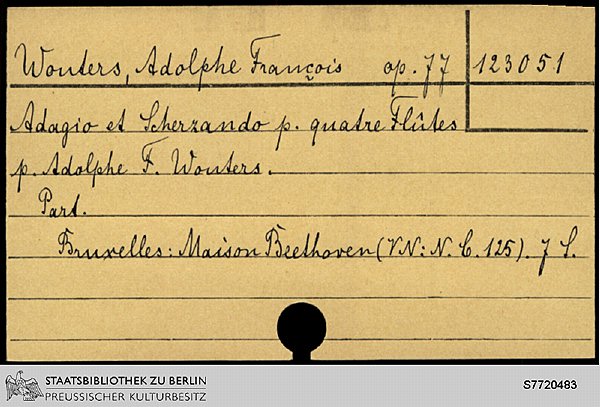 Wouters, Adolphe François op. 77 123051
Adagio et Scherzando p. quatre Flûtes
p. Adolphe F. Wouters.
Part.
Bruxelles: Maison Beethoven (VN: N. C. 125). 7 S.
STAATSBIBLIOTHEK ZU BERLIN
PREUSSISCHER KULTURBESITZ
S7720483